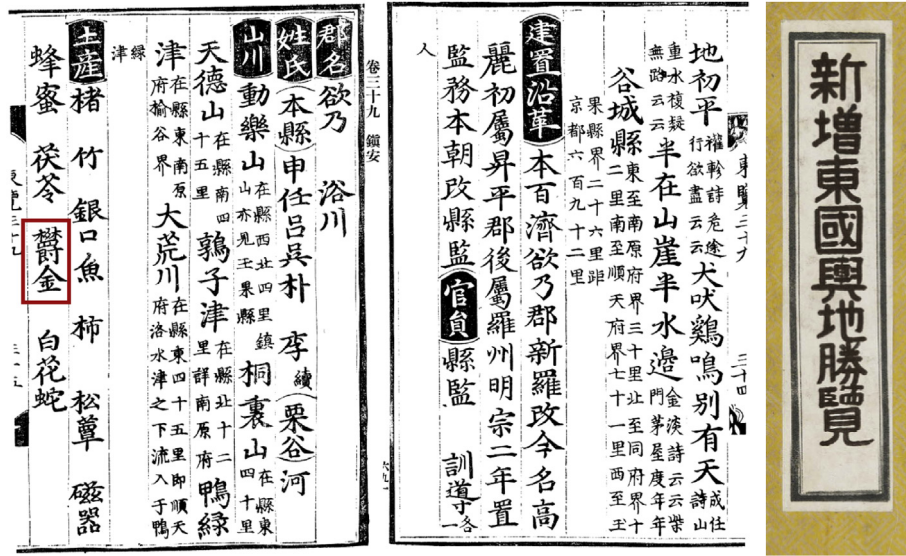 新增東國輿地勝覽
東覽三十九 三十四
地初平 權軫詩危途行欲盡云云 犬吠鷄鳴別有天 成任詩山
重水複疑無路云云 半在山崖半水邊 金淡詩云云柴門茅屋度年年
谷城縣 東至南原府界三十里北至同府界十二里南至順天府界七十一里西至玉
果縣界二十六里距京都六百九十二里
建置沿革 本百濟欲乃郡新羅改今名高
麗初屬昇平郡後屬羅州明宗二年置
監務本朝改縣監 官員 縣監 訓導 各一
人
卷三十九 鎭安 六九一
郡名 欲乃 浴川
姓氏 (本縣)申任呂吳朴 李續 (栗谷)河
山川 動樂山 在縣西北四里鎭山亦見玉果縣 桐裏山 在縣東四十里
天德山 在縣南四十五里 鶉子津 在縣北十二里詳南原府 鴨綠
津 在縣東南原府揄谷界 大荒川 在縣東四十五里即順天府洛水津之下流入于鴨
綠津
土産 楮 竹 銀口魚 柿 松蕈 磁器
蜂蜜 茯苓 鬱金 白花蛇